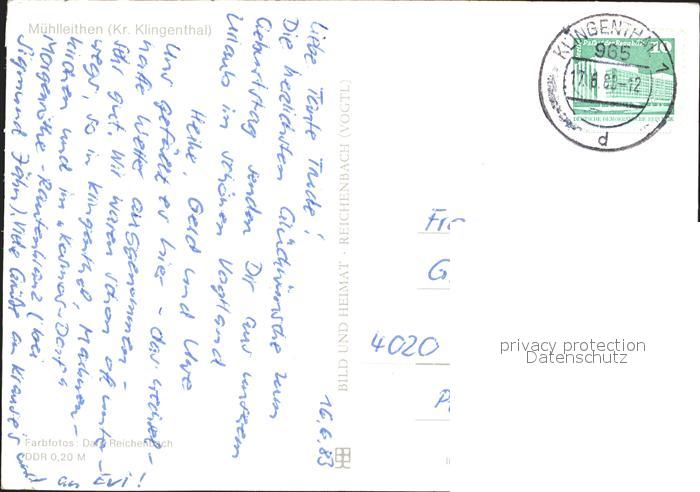 Mühlleithen (Kr. Klingenthal)
Liebe Tante Trude!
Die herzlichsten Glückwünsche zum
Geburtstag senden Dir aus unserem
Urlaub im schönen Vogtland
Heike, Gerd und Uwe
Uns gefällt es hier - das wechsel-
hafte Wetter ausgenommen -
sehr gut. Wir waren schon oft unter-
wegs, so in Klingenthal, Markneu-
kirchen und im "Kosmos-Dorf"
Morgenröthe-Rautenkranz (bei
Sigmund Jähn). Viele Grüße an Krause's und
an Evi!
16.6.83
Farbfotos: Darr, Reichenbach
DDR 0,20 M
BILD UND HEIMAT · REICHENBACH (VOGTL)
KLINGENTHAL 1
965
17.6.83-12
d
Palast der Republik
10
DEUTSCHE DEMOKRATISCHE REPUBLIK
G
4020
privacy protection
Datenschutz